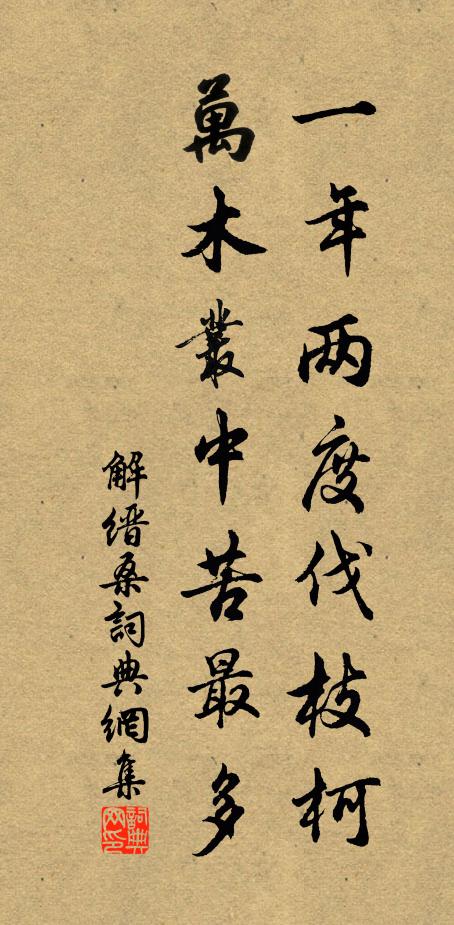 一年两度伐枝柯
萬木叢中苦最多
解缙桑詞典網集
詞典網印